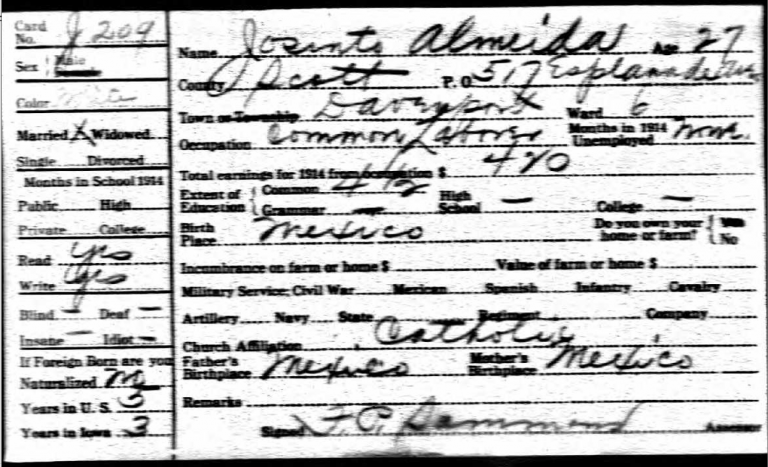 Card No. J 209
Sex { Male Female
Color White
Married X Widowed
Single Divorced
Months in School 1914
Public High
Private College
Read yes
Write yes
Blind — Deaf —
Insane — Idiot —
If Foreign Born are you
Naturalized no
Years in U. S. 3
Years in Iowa 3
Name Josinto Almeida Age 27
County Scott P. O. 517 Esplanade Ave
Town or Township Davenport Ward 6
Occupation Common Laborer Months in 1914 Unemployed
Total earnings for 1914 from occupation $ 420
Extent of Education { Common 4 1/2 High School — College —
Grammar —
Birth Place Mexico Do you own your home or farm? { Yes No
Incumbrance on farm or home $ Value of farm or home $
Military Service: Civil War Mexican Spanish Infantry Cavalry
Artillery Navy State Regiment Company
Church Affiliation Catholic
Father's Birthplace Mexico Mother's Birthplace Mexico
Remarks
Signed F. P. Dammond Assessor